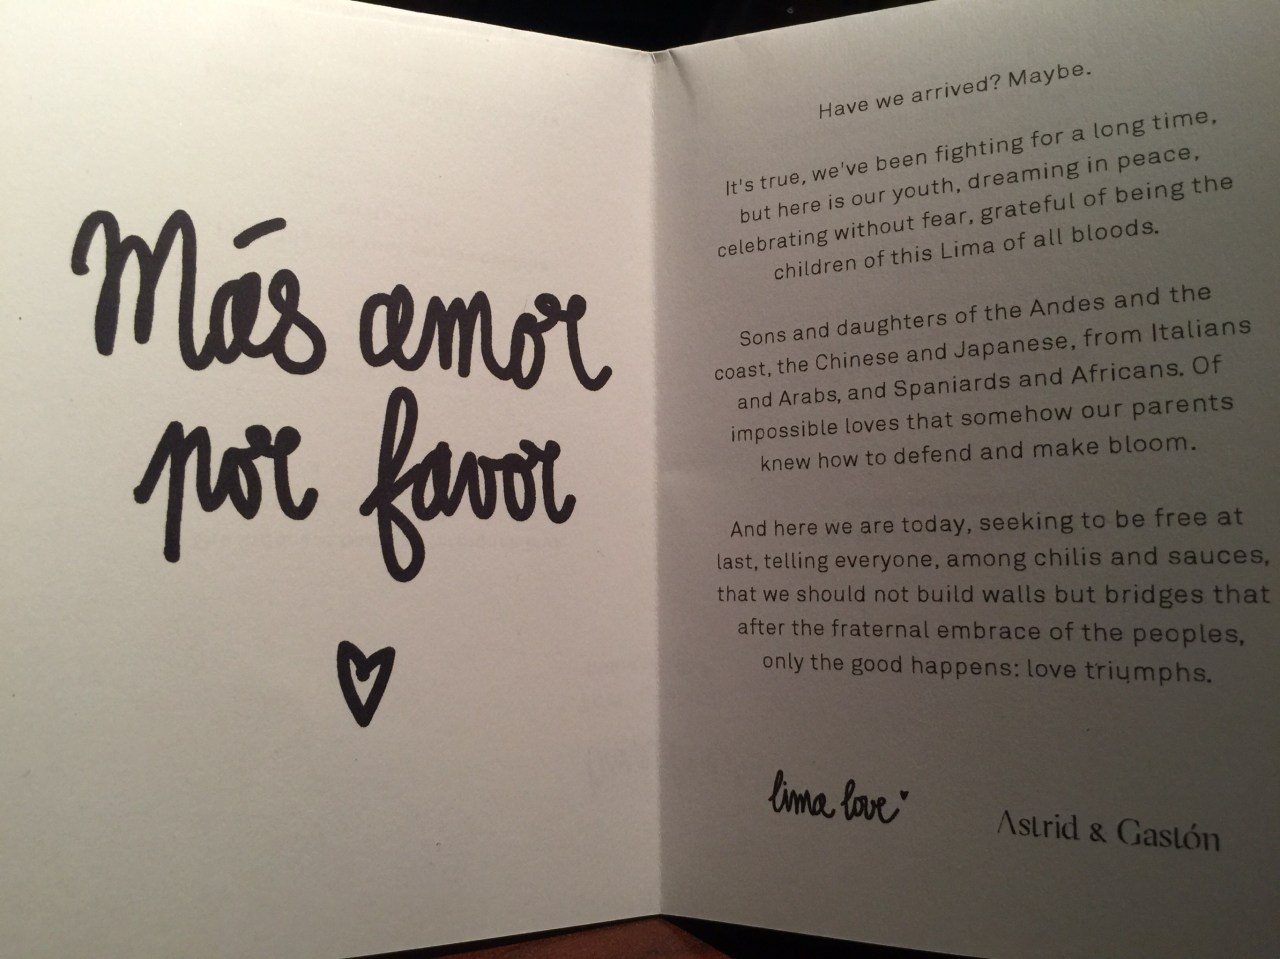 Más amor
por favor
Have we arrived? Maybe.
It's true, we've been fighting for a long time,
but here is our youth, dreaming in peace,
celebrating without fear, grateful of being the
children of this Lima of all bloods.
Sons and daughters of the Andes and the
coast, the Chinese and Japanese, from Italians
and Arabs, and Spaniards and Africans. Of
impossible loves that somehow our parents
knew how to defend and make bloom.
And here we are today, seeking to be free at
last, telling everyone, among chilis and sauces,
that we should not build walls but bridges that
after the fraternal embrace of the peoples,
only the good happens: love triumphs.
lima love
Astrid & Gastón